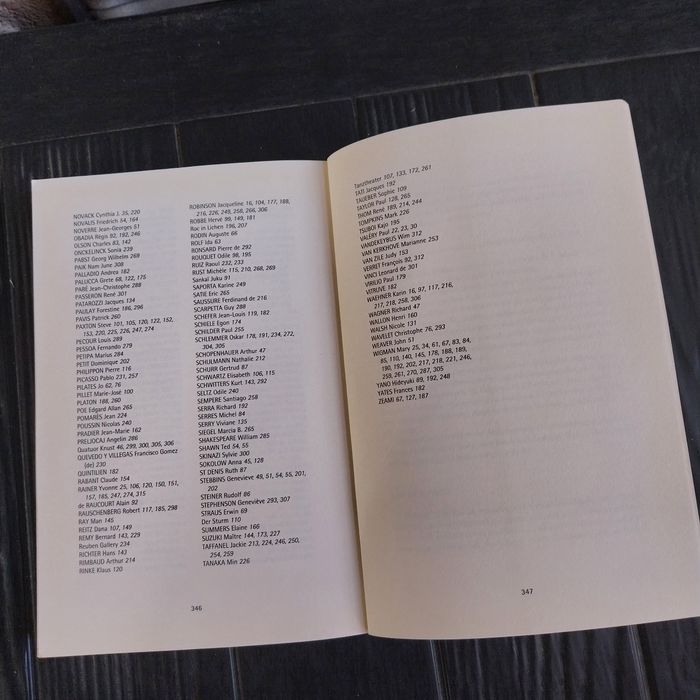 NOVACK Cynthia J. 35, 220
NOVALIS Friedrich 54, 164
NOVERRE Jean-Georges 51
OBADIA Régis 92, 246
OLSON Charles 83, 142
ONCKELINCK Sonia 239
PABST Georg Wilhelm 269
PAIK Nam June 308
PALLADIO Andrea 182
PALUCCA Grete 68, 122, 175
PARÉ Jean-Christophe 288
PASSERON René 301
PATAROZZI Jacques 134
PAULAY Forestine 186, 296
PAVIS Patrick 260
PAXTON Steve 101, 105, 120, 122, 152,
153, 220, 225, 226, 247, 274
PECOUR Louis 289
PESSOA Fernando 279
PETIPA Marius 284
PETIT Dominique 202
PHILIPPON Pierre 116
PICASSO Pablo 231, 257
PILATES Jo 62, 76
PILLET Marie-José 100
PLATON 188, 260
POE Edgard Allan 265
POMARÈS Jean 224
POUSSIN Nicolas 240
PRADIER Jean-Marie 162
PRELJOCAJ Angelin 286
Quatuor Knust 46, 299, 300, 305, 306
QUEVEDO Y VILLEGAS Francisco Gomez
(de) 230
QUINTILIEN 182
RABANT Claude 154
RAINER Yvonne 25, 106, 120, 150, 151,
157, 185, 247, 274, 315
de RAUCOURT Alain 92
RAUSCHENBERG Robert 117, 185, 298
RAY Man 145
REITZ Dana 107, 149
REMY Bernard 143, 229
Reuben Gallery 234
RICHTER Hans 143
RIMBAUD Arthur 214
RINKE Klaus 120
ROBINSON Jacqueline 16, 104, 177, 188,
216, 226, 249, 258, 266, 306
ROBBE Hervé 99, 149, 181
Roc in Lichen 196, 207
RODIN Auguste 66
ROLF Ida 63
RONSARD Pierre de 292
ROUQUET Odile 98, 195
RUIZ Raoul 232, 233
RUST Michèle 115, 210, 268, 269
Sankaï Juku 91
SAPORTA Karine 249
SATIE Eric 265
SAUSSURE Ferdinand de 216
SCARPETTA Guy 288
SCHEFER Jean-Louis 119, 182
SCHIELE Egon 174
SCHILDER Paul 255
SCHLEMMER Oskar 178, 191, 234, 272,
304, 305
SCHOPENHAUER Arthur 47
SCHULMANN Nathalie 212
SCHURR Gertrud 87
SCHWARTZ Elisabeth 106, 115
SCHWITTERS Kurt 143, 292
SELTZ Odile 240
SEMPERE Santiago 258
SERRA Richard 192
SERRES Michel 84
SERRY Viviane 135
SIEGEL Marcia B. 265
SHAKESPEARE William 285
SHAWN Ted 54, 55
SKINAZI Sylvie 300
SOKOLOW Anna 45, 128
ST DENIS Ruth 87
STEBBINS Genevieve 49, 51, 54, 55, 201,
202
STEINER Rudolf 86
STEPHENSON Geneviève 293, 307
STRAUS Erwin 69
Der Sturm 110
SUMMERS Elaine 166
SUZUKI Maître 144, 173, 227
TAFFANEL Jackie 213, 224, 246, 250,
254, 259
TANAKA Min 226
346
Tanztheater 107, 133, 172, 261
TATI Jacques 192
TAUEBER Sophie 109
TAYLOR Paul 128, 265
THOM René 189, 214, 244
TOMPKINS Mark 226
TSUBOI Kajo 195
VALÉRY Paul 22, 23, 30
VANDEKEYBUS Wim 312
VAN KERKHOVE Marianne 253
VAN ZILE Judy 153
VERRET François 92, 312
VINCI Léonard de 301
VIRILIO Paul 179
VITRUVE 182
WAEHNER Karin 16, 97, 117, 216,
217, 218, 258, 306
WAGNER Richard 47
WALLON Henri 160
WALSH Nicole 131
WAVELET Christophe 76, 293
WEAVER John 51
WIGMAN Mary 25, 34, 61, 67, 83, 84,
85, 110, 140, 145, 178, 188, 189,
190, 192, 202, 217, 218, 221, 246,
258, 261, 270, 287, 305
YANO Hideyuki 89, 192, 248
YATES Frances 182
ZEAMI 67, 127, 187
347